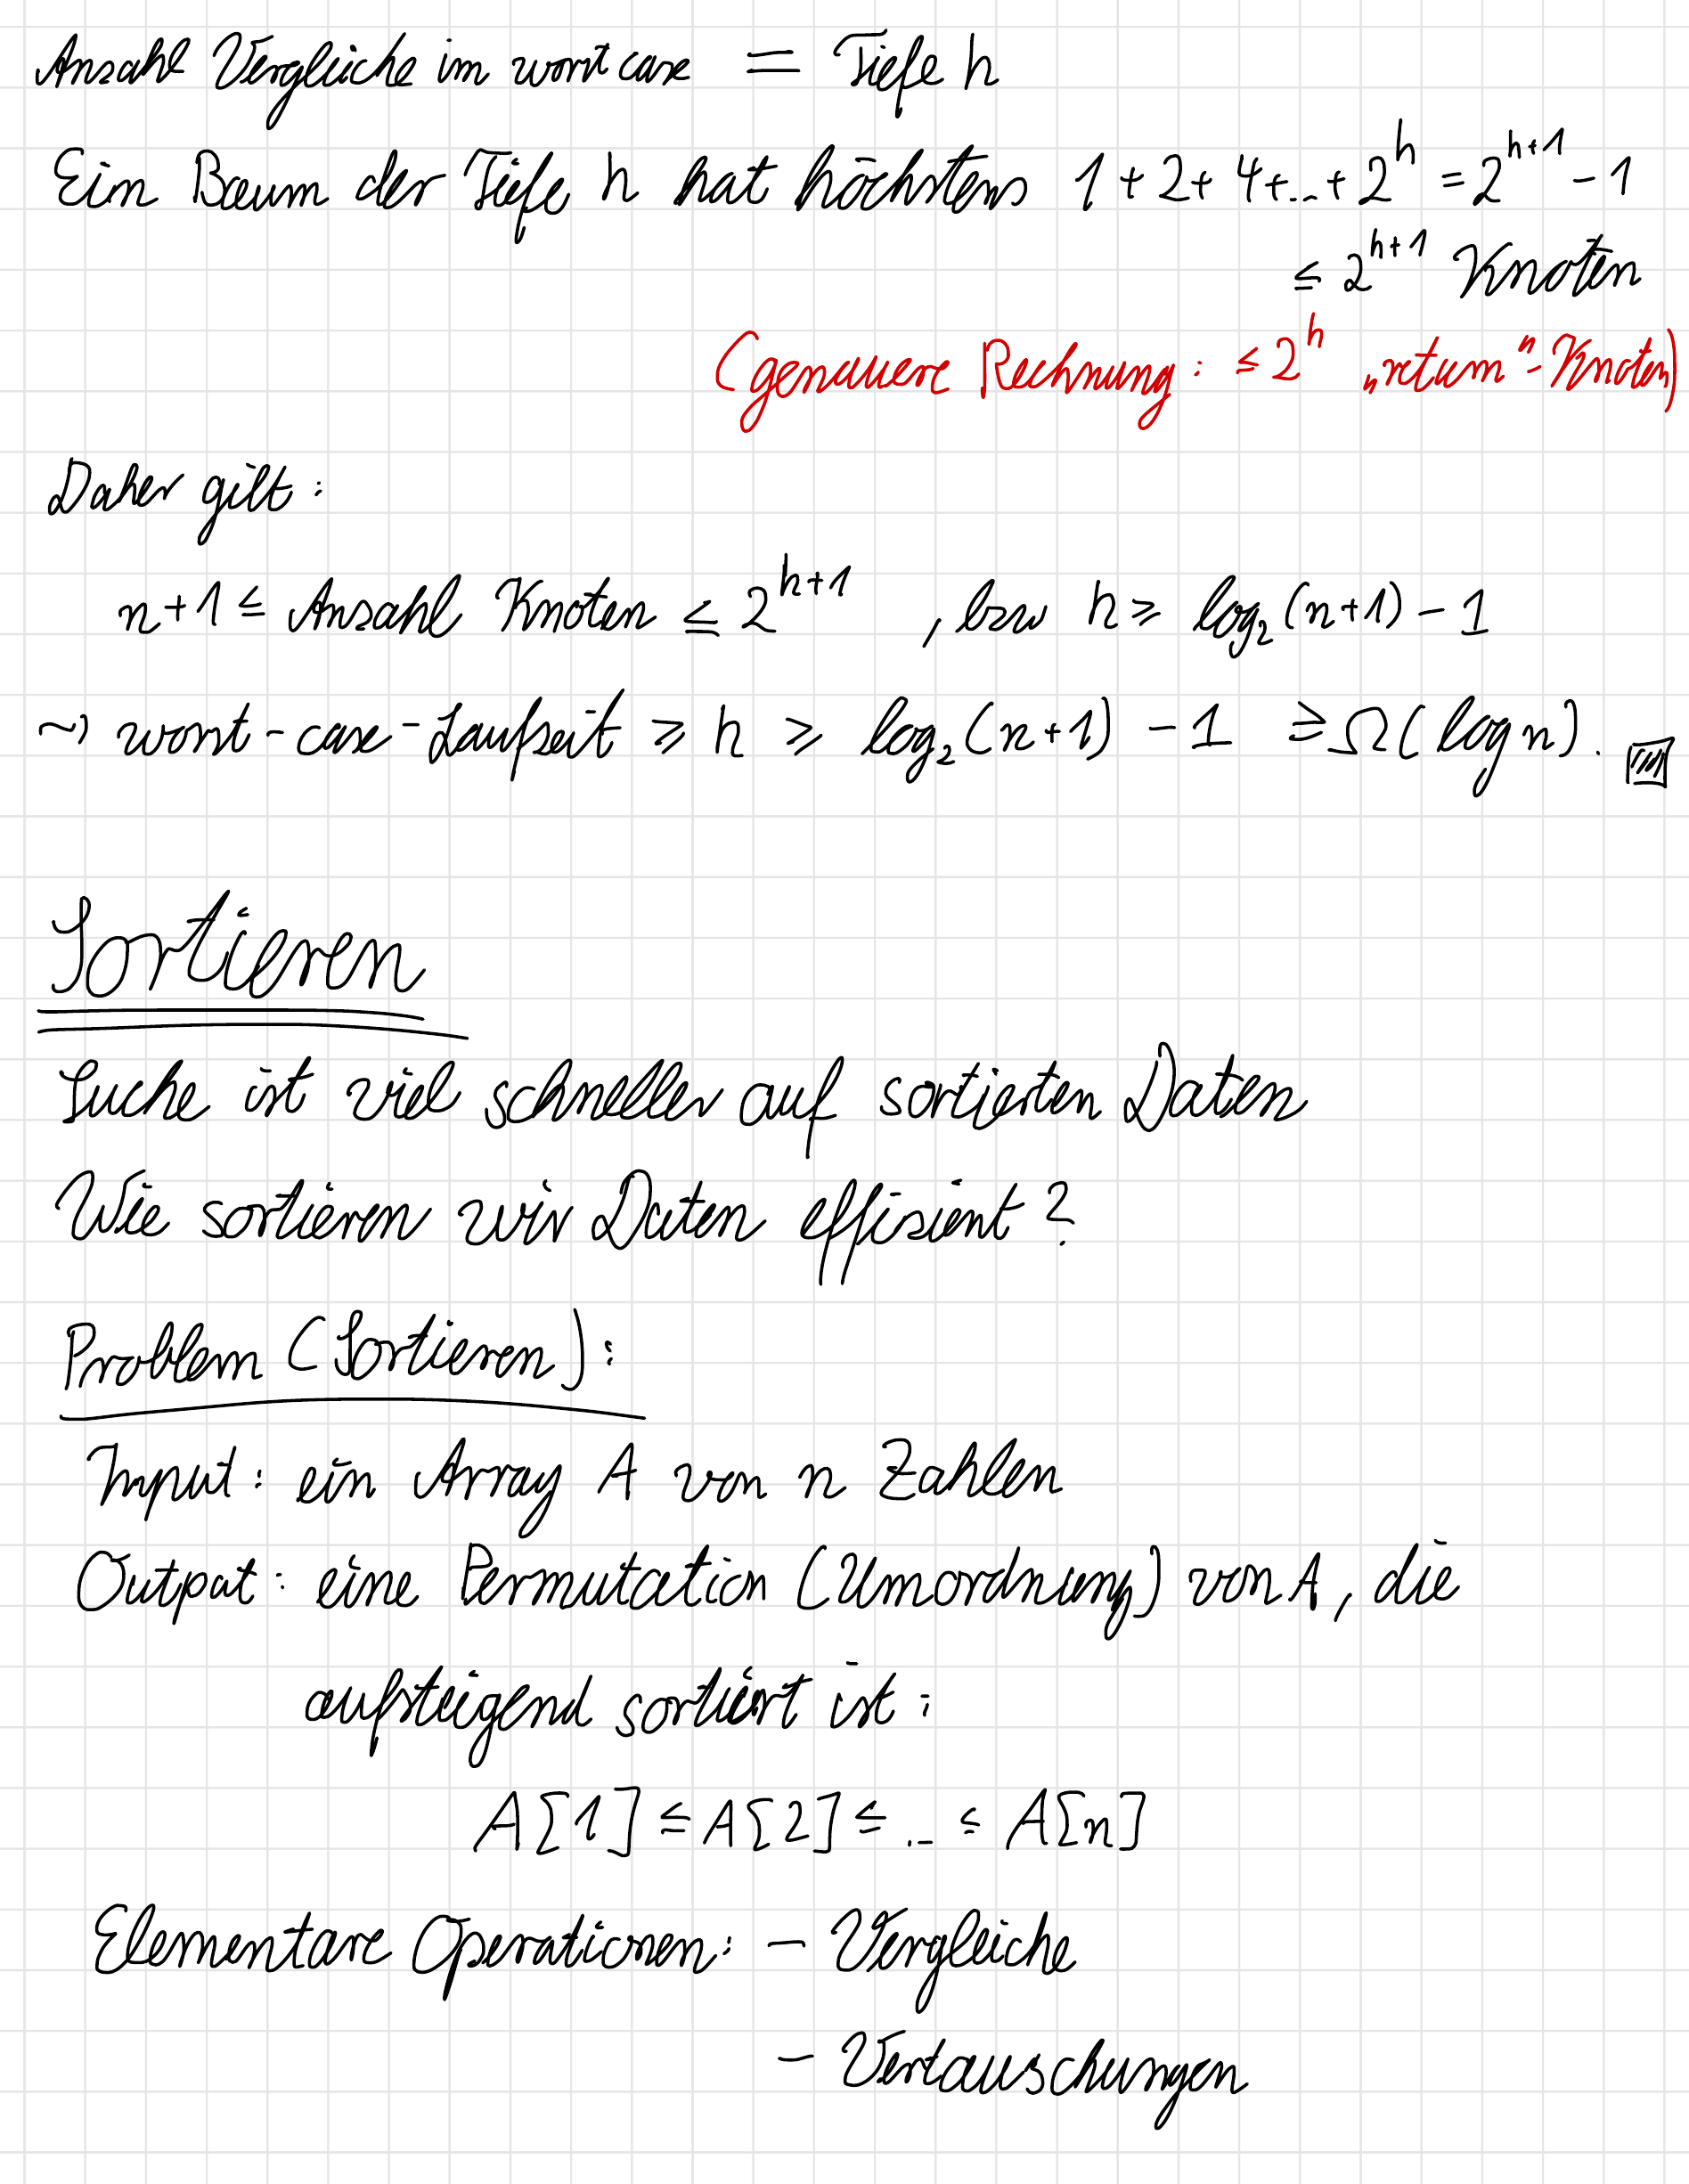 Anzahl Vergleiche im worst case = Tiefe h
Ein Baum der Tiefe h hat höchstens 1 + 2 + 4 + .. + 2^h = 2^{h+1} - 1
≤ 2^{h+1} Knoten
(genauere Rechnung: ≤ 2^h „return"-Knoten)
Daher gilt:
n+1 ≤ Anzahl Knoten ≤ 2^{h+1} , bzw h ≥ log₂(n+1) - 1
⇝ worst-case-Laufzeit ≥ h ≥ log₂(n+1) - 1 ≥ Ω(log n).
Sortieren
Suche ist viel schneller auf sortierten Daten
Wie sortieren wir Daten effizient?
Problem (Sortieren):
Input: ein Array A von n Zahlen
Output: eine Permutation (Umordnung) von A, die
aufsteigend sortiert ist:
A[1] ≤ A[2] ≤ .. ≤ A[n]
Elementare Operationen: - Vergleiche
- Vertauschungen